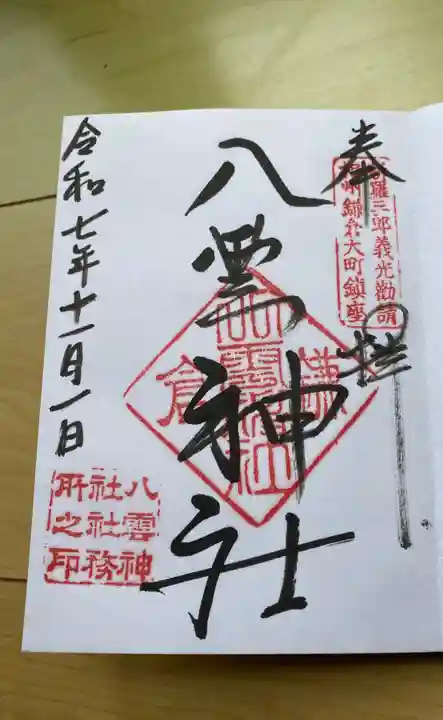 奉拝
新羅三郎義光勸請
相州鎌倉大町鎮座
八雲神社
鎌倉
八雲神社
令和七年十一月一日
八雲神
社社務
所之印